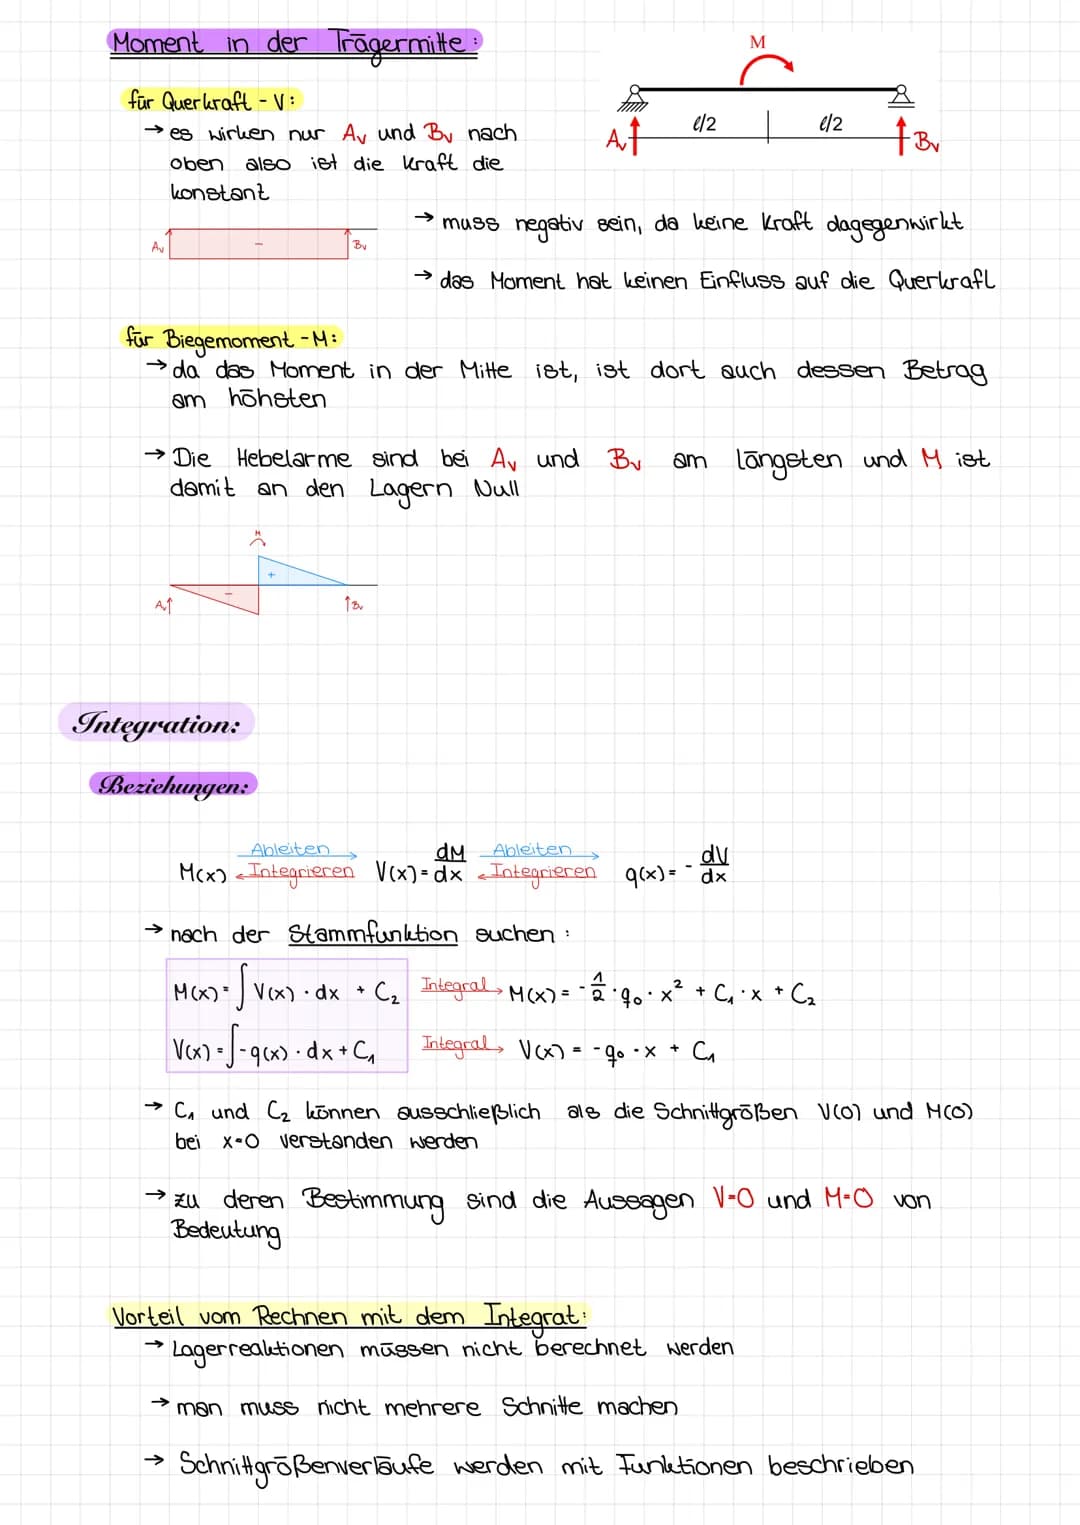 Moment in der Trägermitte:
M
für Querkraft - V:
→ es wirken nur Av und Bv nach
oben also ist die Kraft die
konstant
l/2
l/2
Av
Bv
Av
-
Bv
→ muss negativ sein, da keine Kraft dagegenwirkt
→ das Moment hat keinen Einfluss auf die Querkraft
für Biegemoment - M:
→ da das Moment in der Mitte ist, ist dort auch dessen Betrag
am höhsten
→ Die Hebelarme sind bei Av und Bv am längsten und M ist
damit an den Lagern Null
M
+
-
Av
Bv
Integration:
Beziehungen:
Ableiten → dM Ableiten → dV
M(x) ← Integrieren V(x) = dx ← Integrieren q(x) = - dx
→ nach der Stammfunktion suchen :
M(x) = ∫ V(x) · dx + C₂ Integral → M(x) = - 1/2 · q₀ · x² + C₁ · x + C₂
V(x) = ∫ - q(x) · dx + C₁ Integral → V(x) = - q₀ · x + C₁
→ C₁ und C₂ können ausschließlich als die Schnittgrößen V(0) und M(0)
bei x=0 verstanden werden
→ zu deren Bestimmung sind die Aussagen V=0 und M=0 von
Bedeutung
Vorteil vom Rechnen mit dem Integrat:
→ Lagerreaktionen müssen nicht berechnet werden
→ man muss nicht mehrere Schnitte machen
→ Schnittgrößenverläufe werden mit Funktionen beschrieben